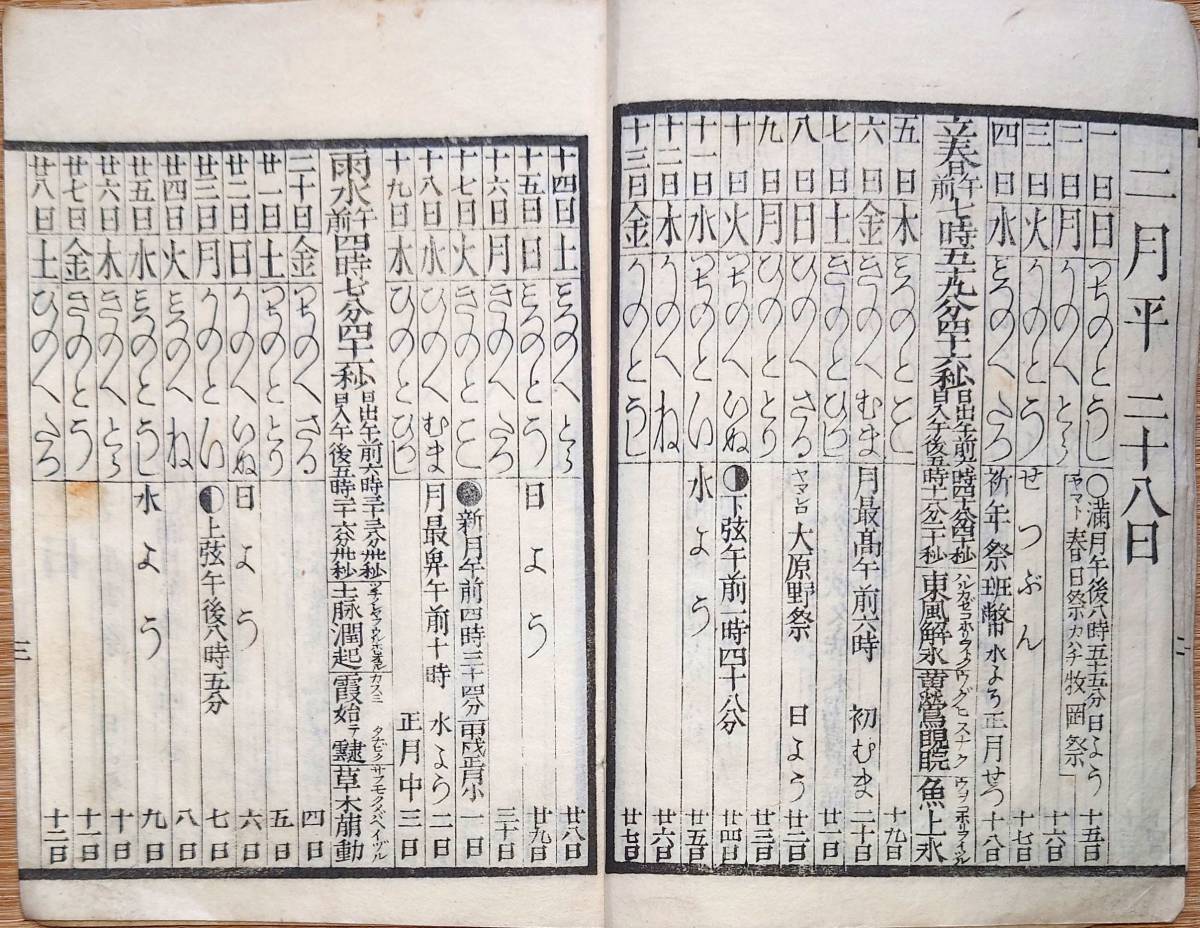 二月平 二十八日
一日 日 つちのとうし ○満月午後八時五十五分 日よう 十五日
二日 月 かのへとら ヤマト春日祭 カハチ枚岡祭 十六日
三日 火 かのとう せつぶん 十七日
四日 水 みつのへたつ 祈年祭班幣 水よう 正月せつ 十八日
立春 午前七時五十九分四十六秒 日出午前六時四十八分四十秒 日入午後五時十一分二十秒 東風解氷 ハルカゼコホリヲトク 黄鶯睍睆 ウグヒスナク 魚上氷 ウヲコホリヲイヅル
五日 木 みつのとみ 十九日
六日 金 きのへむま 月最高午前六時 初むま 二十日
七日 土 きのとひつし 廿一日
八日 日 ひのへさる ヤマシロ大原野祭 日よう 廿二日
九日 月 ひのとり 廿三日
十日 火 つちのへいぬ 下弦午前一時四十八分 廿四日
十一日 水 つちのとい 水よう 廿五日
十二日 木 かのへね 廿六日
十三日 金 かのとうし 廿七日
二
十四日 土 みつのへとら 廿八日
十五日 日 みつのとう 日よう 廿九日
十六日 月 きのへたつ 三十日
十七日 火 きのとみ 新月午前四時三十四分 丙戌正月小 一日
十八日 水 ひのへむま 月最卑午前十時 水よう 二日
十九日 木 ひのとひつし 正月中 三日
雨水 午前四時七分四十一秒 日出午前六時三十三分卅秒 日入午後五時二十六分卅秒 土脉潤起 霞始テ靆 カスミ タナビク 草木萠動 サウモクメバヘイヅル
二十日 金 つちのへさる 四日
廿一日 土 つちのとり 五日
廿二日 日 かのへいぬ 日よう 六日
廿三日 月 かのとい 上弦午後八時五分 七日
廿四日 火 みつのへね 八日
廿五日 水 みつのとうし 水よう 九日
廿六日 木 きのへとら 十日
廿七日 金 きのとう 十一日
廿八日 土 ひのへたつ 十二日
三